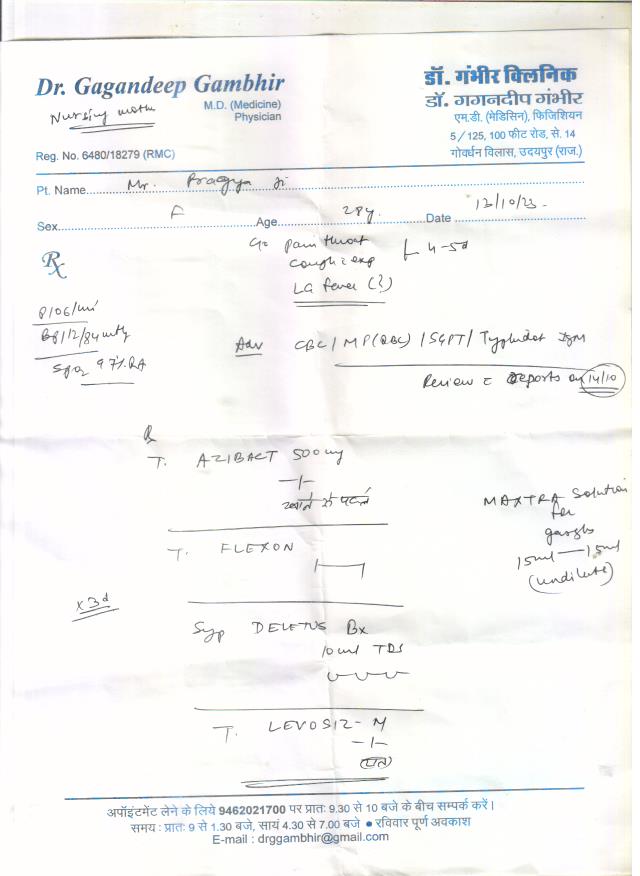 Dr. Gagandeep Gambhir
M.D. (Medicine)
Physician
Nursing moth
Reg. No. 6480/18279 (RMC)
डॉ. गंभीर क्लिनिक
डॉ. गगनदीप गंभीर
एम.डी. (मेडिसिन), फिजिशियन
5/125, 100 फीट रोड, से. 14
गोवर्धन विलास, उदयपुर (राज.)
Pt. Name Mr. Pragya Ji
Sex F Age 28y. Date 12/10/23
Rx
pain throat
cough c exp 4-5d
LG fever (?)
P/106/min
BP/12/84
Spo2 97%.RA
Adv CBC/MP(QBC)/SGPT/Typhidot IgM
Review c Reports on 14/10
T. AZIBACT 500mg
-1-
खाने से पहले
T. FLEXON
MAXTRA Solution
for
gargles
15ml — 15ml
(undilute)
x 3d
Syp DELETUS Bx
10ml TDS
T. LEVOSIZ-M
-1-
रात
अपॉइंटमेंट लेने के लिये 9462021700 पर प्रातः 9.30 से 10 बजे के बीच सम्पर्क करें।
समय : प्रातः 9 से 1.30 बजे, सायं 4.30 से 7.00 बजे ● रविवार पूर्ण अवकाश
E-mail : drggambhir@gmail.com